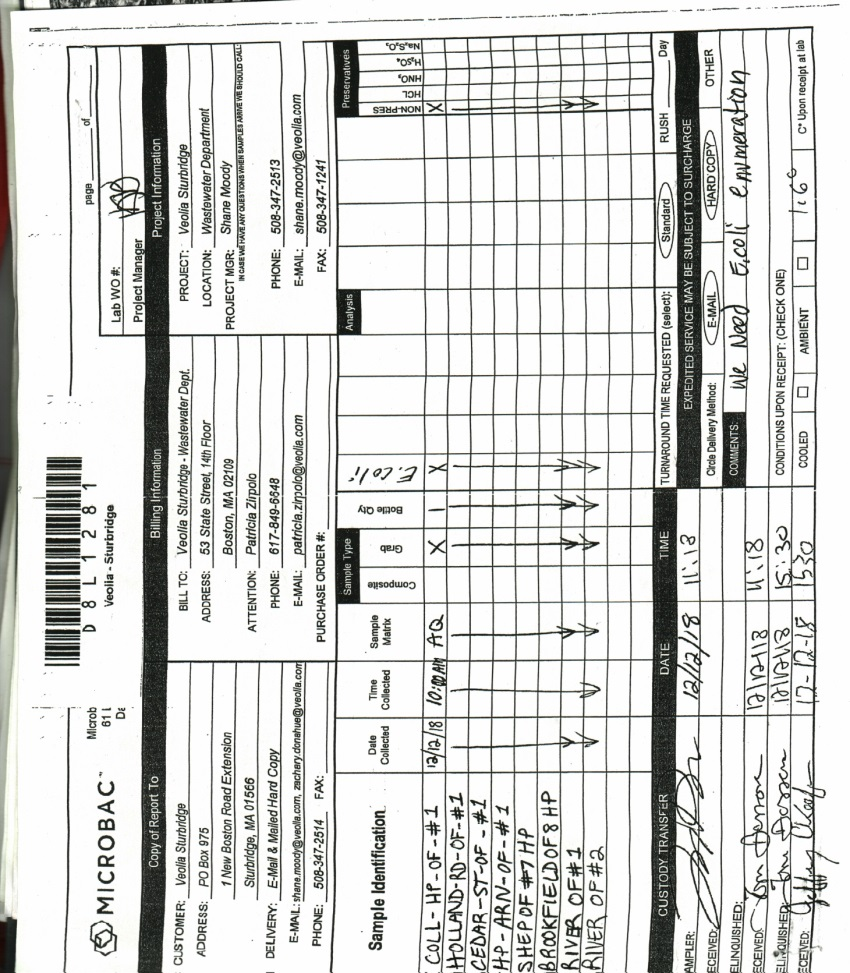 MICROBAC™
Microb
61 L
Da
D8L1281
Veolia - Sturbridge
page ____ of ____
Lab WO #:
Project Manager
Copy of Report To
CUSTOMER: Veolia Sturbridge
ADDRESS: PO Box 975
1 New Boston Road Extension
Sturbridge, MA 01566
DELIVERY: E-Mail & Mailed Hard Copy
E-MAIL: shane.moody@veolia.com, zachary.donahue@veolia.com
PHONE: 508-347-2514 FAX:
Billing Information
BILL TO: Veolia Sturbridge - Wastewater Dept.
ADDRESS: 53 State Street, 14th Floor
Boston, MA 02109
ATTENTION: Patricia Zirpolo
PHONE: 617-849-6648
E-MAIL: patricia.zirpolo@veolia.com
PURCHASE ORDER #:
Project Information
PROJECT: Veolia Sturbridge
LOCATION: Wastewater Department
PROJECT MGR: Shane Moody
IN CASE WE HAVE ANY QUESTIONS WHEN SAMPLES ARRIVE WE SHOULD CALL:
PHONE: 508-347-2513
E-MAIL: shane.moody@veolia.com
FAX: 508-347-1241
Sample Identification
Date Collected
Time Collected
Sample Matrix
Sample Type
Composite
Grab
Bottle Qty
Analysis
E.coli
Preservatives
NON-PRES
HCL
HNO₃
H₂SO₄
Na₂S₂O₃
COLL-HP-OF-#1 12/12/18 10:00AM AQ X 1 X X
HOLLAND-RD-OF-#1
CEDAR-ST-OF-#1
HP-ARN-OF-#1
SHEP OF #7 HP
BROOKFIELD OF 8 HP
RIVER OF #1
RIVER OF #2
CUSTODY TRANSFER DATE TIME
AMPLER: 12/12/18 11:18
ECEIVED:
ELINQUISHED:
ECEIVED: 12/12/18 11:18
ELINQUISHED: 12/12/18 15:30
ECEIVED: 12-12-18 1530
TURNAROUND TIME REQUESTED (select): Standard RUSH ____ Day
EXPEDITED SERVICE MAY BE SUBJECT TO SURCHARGE
Circle Delivery Method: E-MAIL HARD COPY OTHER
COMMENTS: We Need E.coli enumeration
CONDITIONS UPON RECEIPT: (CHECK ONE)
COOLED ☐ AMBIENT ☐ 1.6° C° Upon receipt at lab